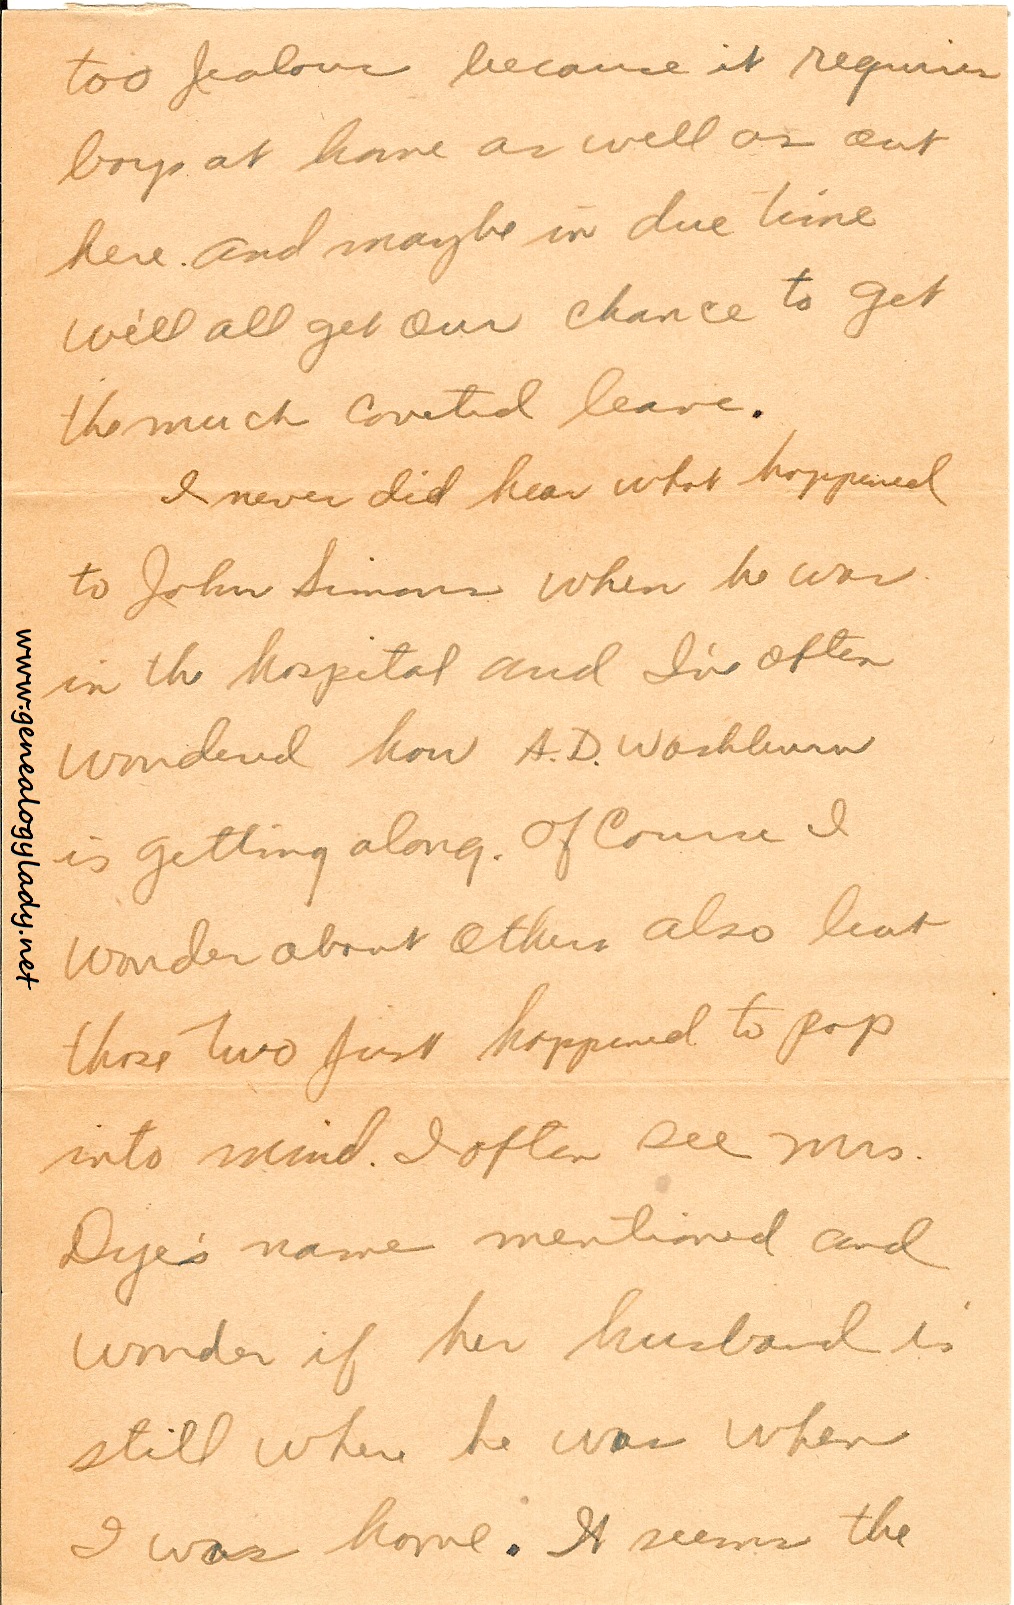 too jealous because it requires
boys at home as well as out
here. and maybe in due time
we'll all get our chance to get
the much coveted leave.
I never did hear what happened
to John Simons when he was
in the hospital and I've often
wondered how A.D. Washburn
is getting along. Of Course I
wonder about others also but
those two just happened to pop
into mind. I often see Mrs.
Dye's name mentioned and
wonder if her husband is
still where he was when
I was home. It seems the
www.genealogylady.net